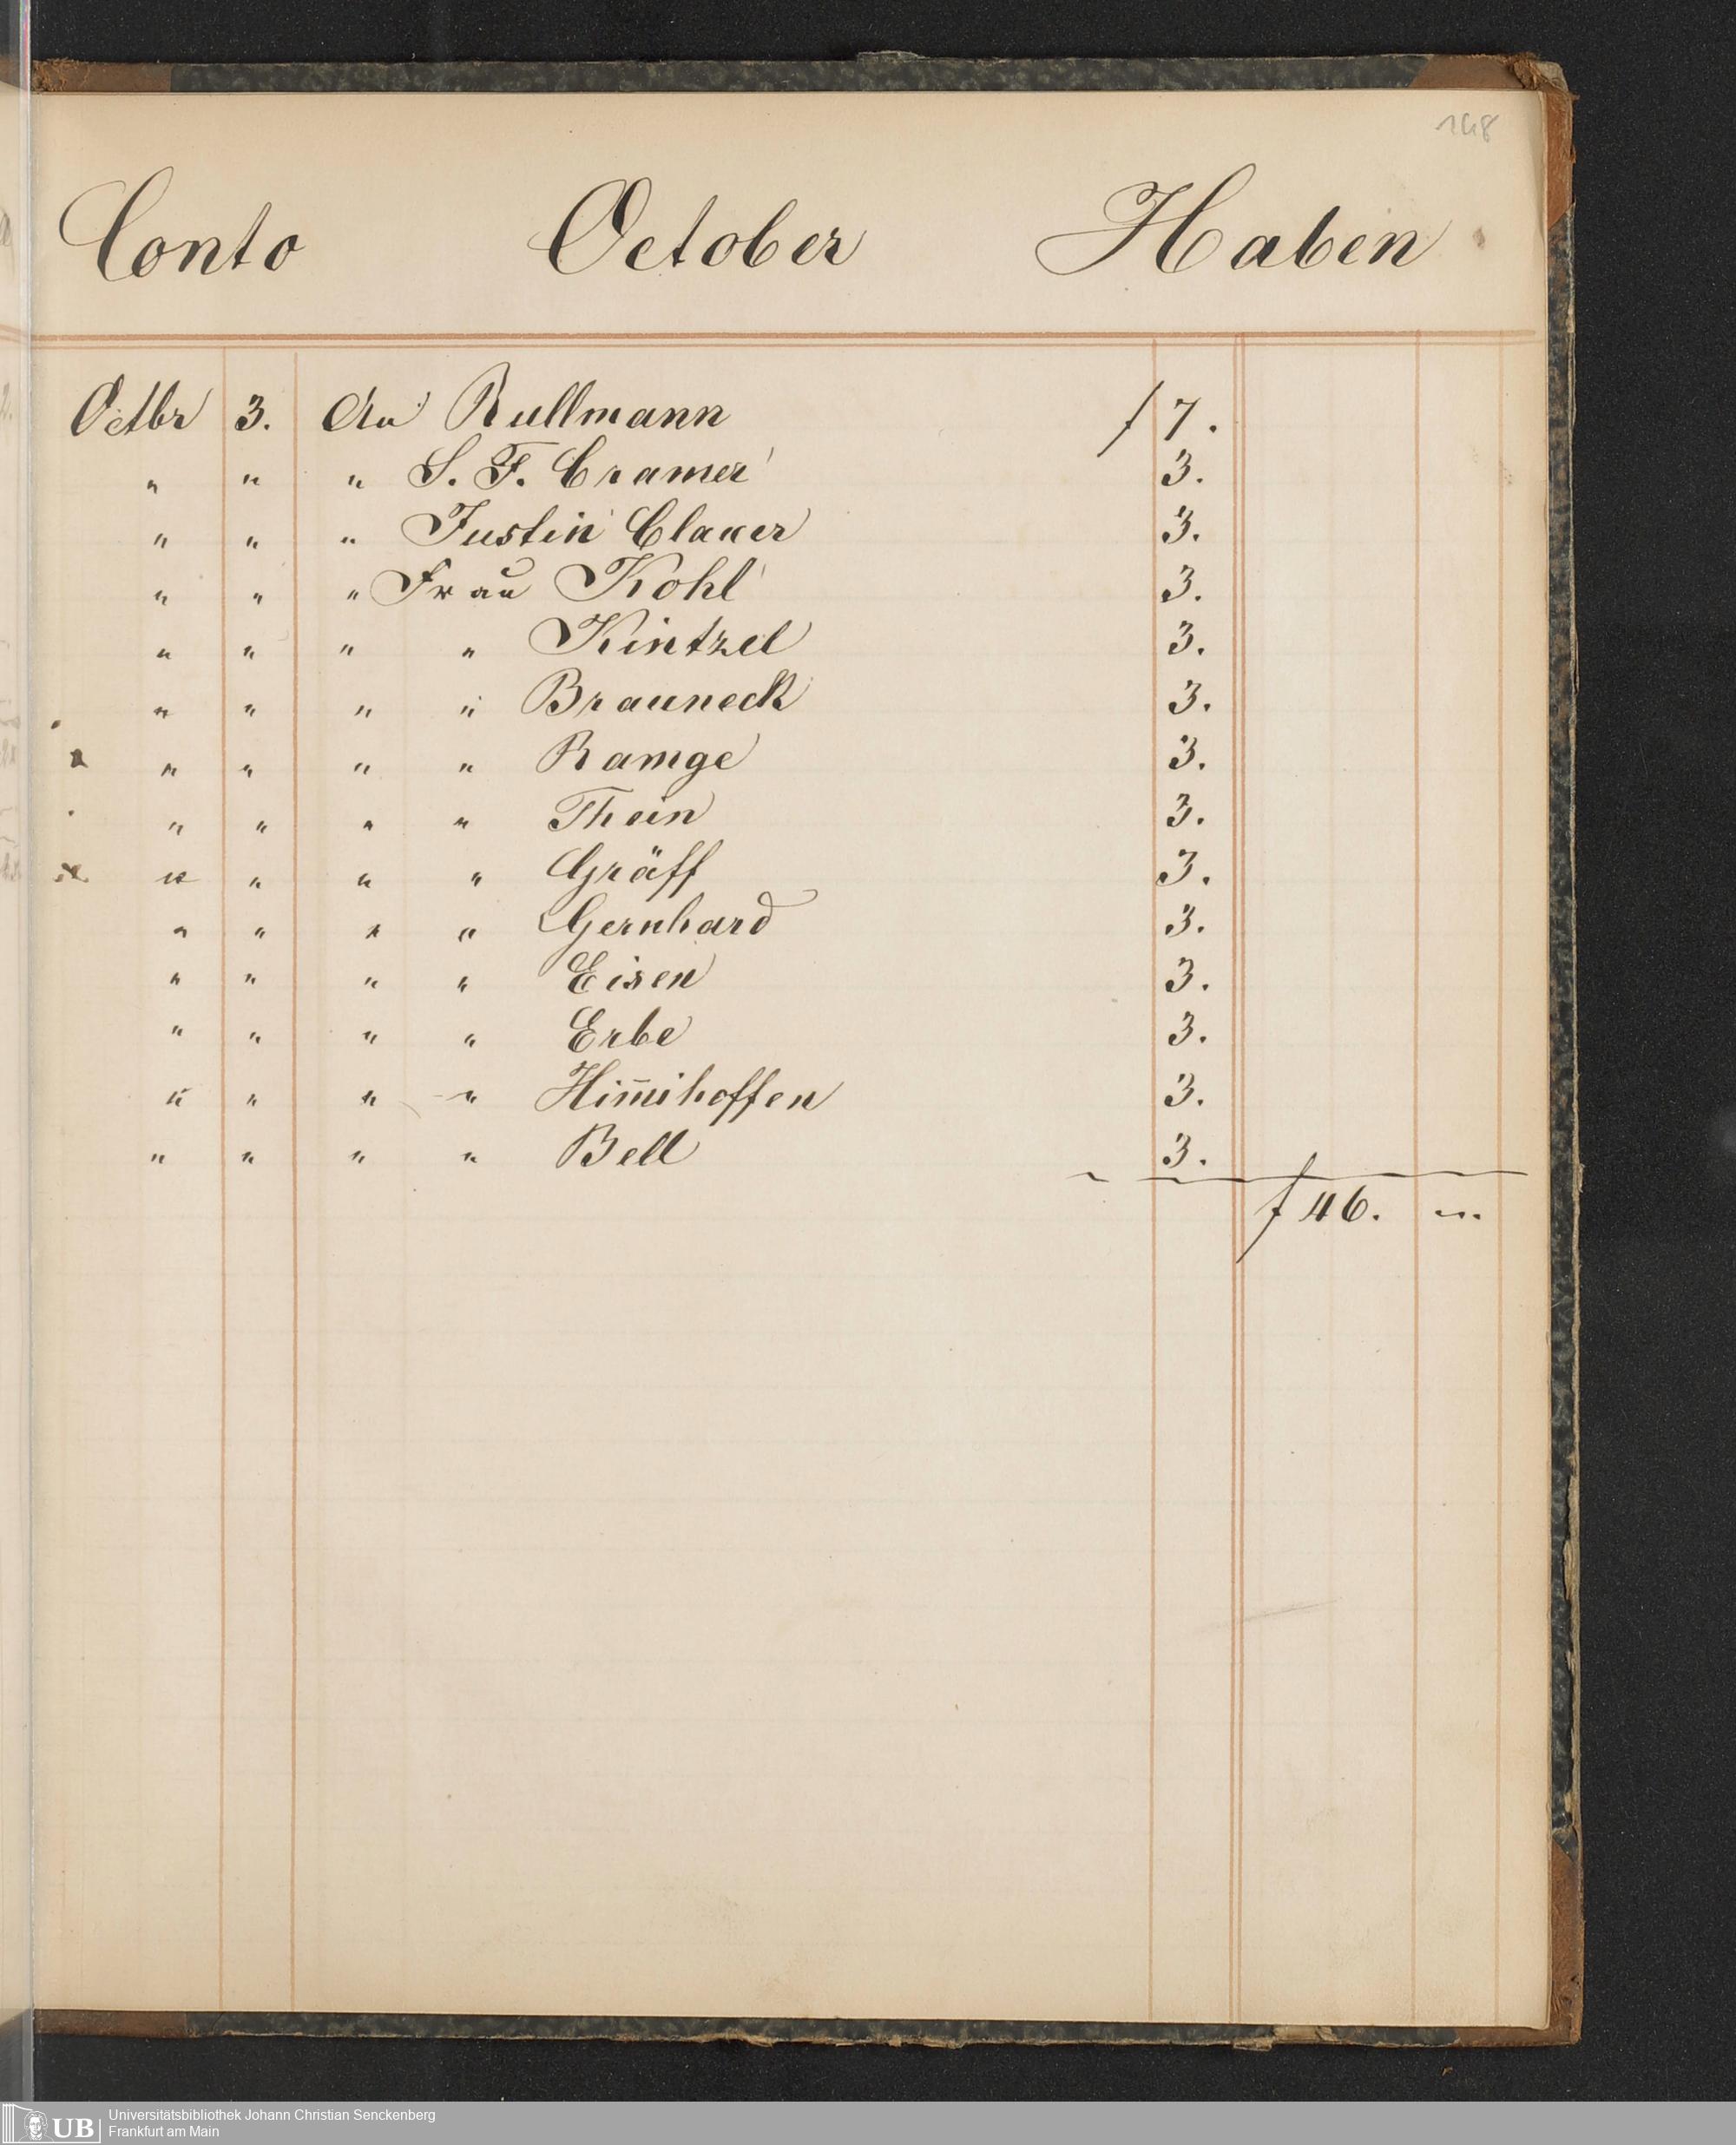 148
Conto October Haben
Octbr 3. An Rullmann f 7.
" " " S. F. Cramer 3.
" " " Justin Clauer 3.
" " " Frau Kohl 3.
" " " " Kintzel 3.
" " " " Brauneck 3.
" " " " Ramge 3.
" " " " Thein 3.
" " " " Gräff 3.
" " " " Gernhard 3.
" " " " Eisen 3.
" " " " Erbe 3.
" " " " Him̅ihoffen 3.
" " " " Bell 3.
f 46. –..
UB
Universitätsbibliothek Johann Christian Senckenberg
Frankfurt am Main